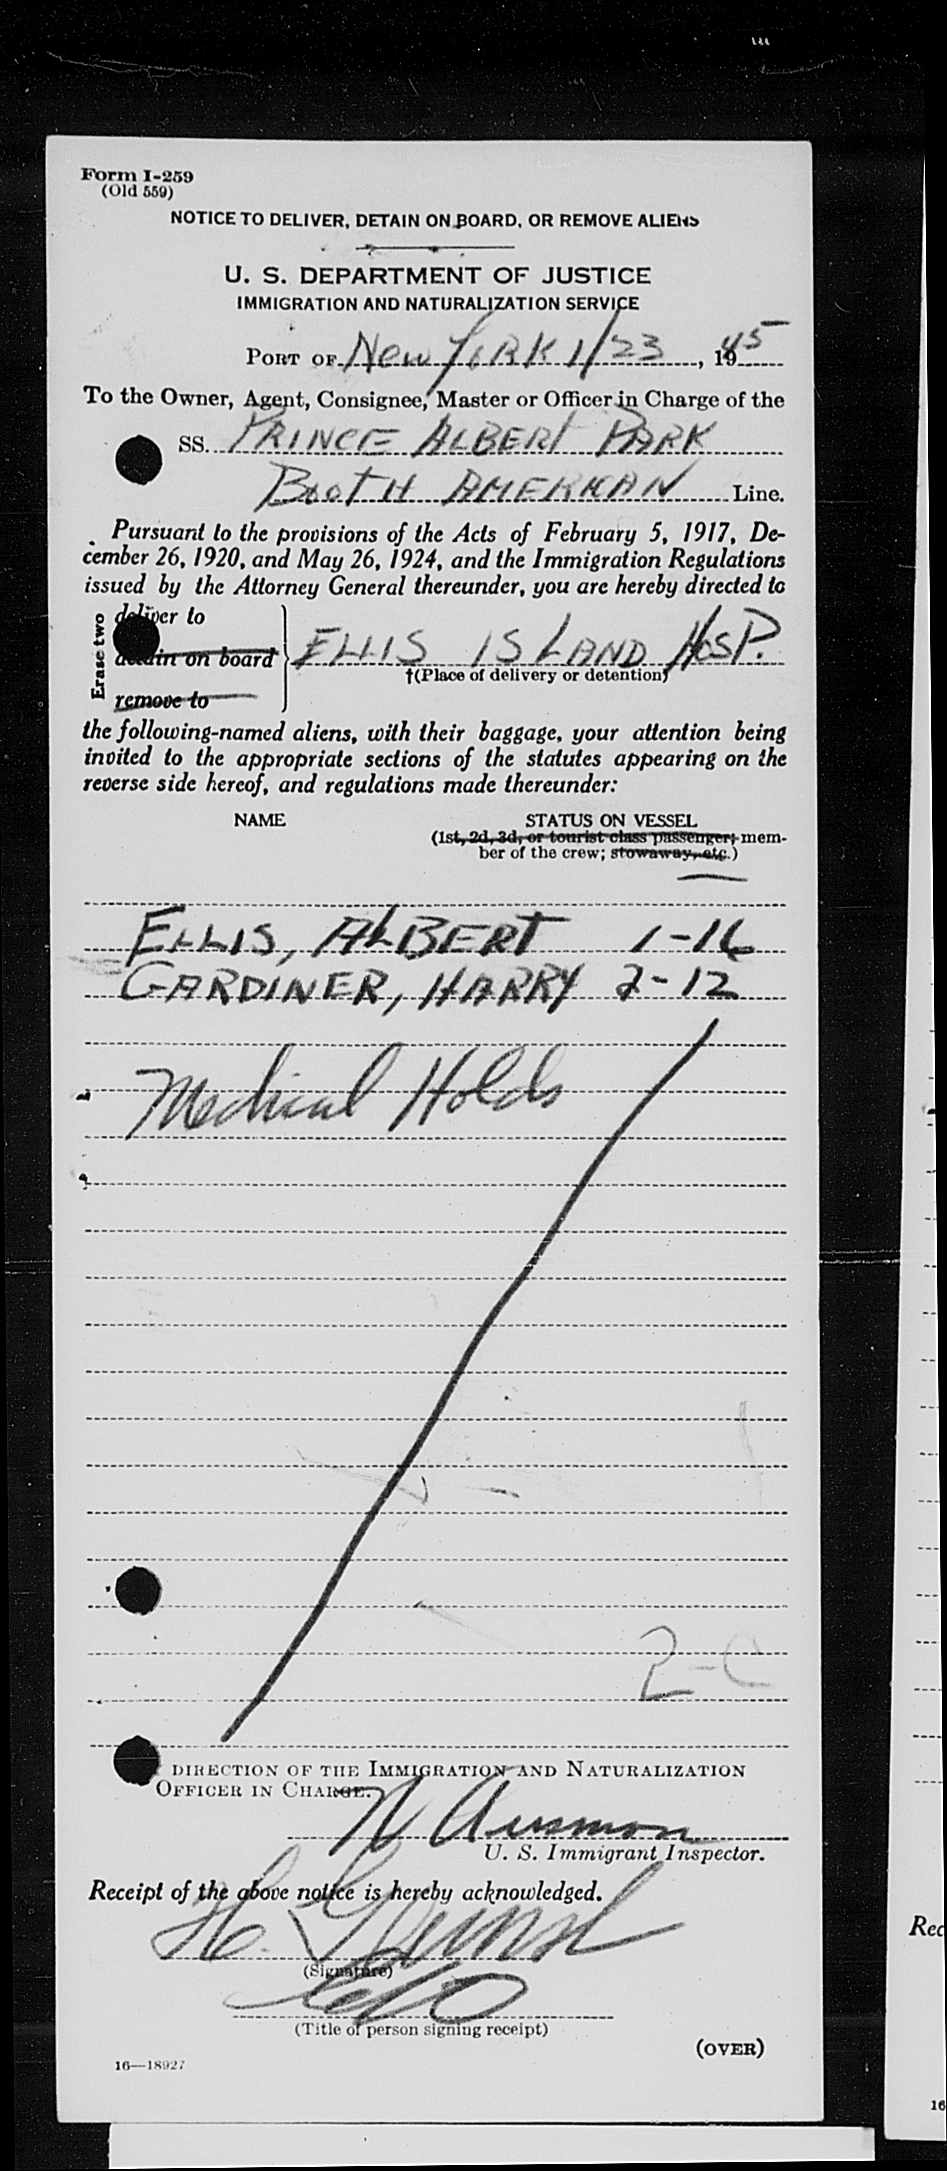 Form I-259
(Old 559)
NOTICE TO DELIVER, DETAIN ON BOARD, OR REMOVE ALIENS
U. S. DEPARTMENT OF JUSTICE
IMMIGRATION AND NATURALIZATION SERVICE
PORT OF New York 1/23, 1945
To the Owner, Agent, Consignee, Master or Officer in Charge of the
SS. PRINCE ALBERT PARK
BOOTH AMERICAN Line.
Pursuant to the provisions of the Acts of February 5, 1917, De-
cember 26, 1920, and May 26, 1924, and the Immigration Regulations
issued by the Attorney General thereunder, you are hereby directed to
Erase two
deliver to
detain on board
remove to
ELLIS ISLAND HOSP.
†(Place of delivery or detention)
the following-named aliens, with their baggage, your attention being
invited to the appropriate sections of the statutes appearing on the
reverse side hereof, and regulations made thereunder:
NAME STATUS ON VESSEL
(1st, 2d, 3d, or tourist class passenger; mem-
ber of the crew; stowaway, etc.)
ELLIS, ALBERT 1-16
GARDINER, HARRY 2-12
Medical Holds
2-C
DIRECTION OF THE IMMIGRATION AND NATURALIZATION
OFFICER IN CHARGE.
U. S. Immigrant Inspector.
Receipt of the above notice is hereby acknowledged.
H.
(Signature)
(Title of person signing receipt)
(OVER)
16—18927
Rec
16